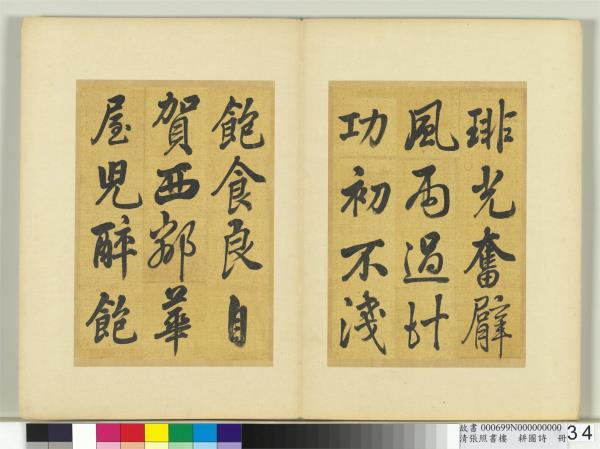 琲光奮臂
風雨過計
功初不淺
飽食良自
賀西鄰華
屋兒醉飽
故書 000699N000000000
清張照書樓　耕圖詩　冊
34